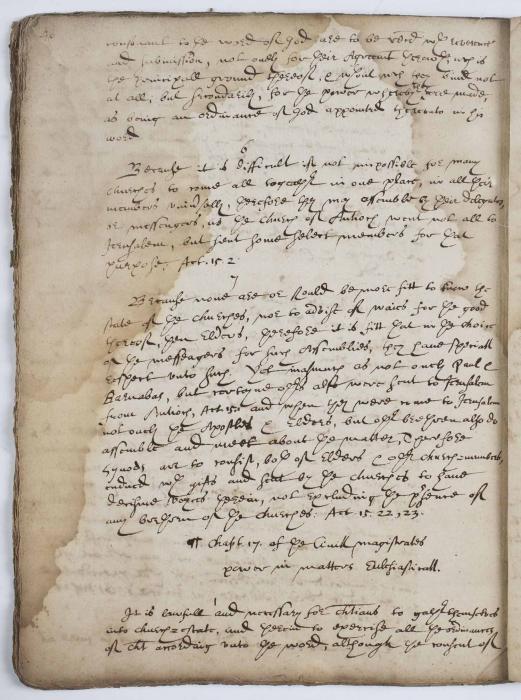 consonant to the word of God are to be recd wth reverence
and submission, not only for their Agreemt therewth, wch is
the principall ground thereof, & wthout wch they bind not
at all; but secondarily, for the power wherby they are made,
as being an ordinance of God appointed thereunto in his
word
6
Because it is difficult if not impossible for many
churches to come all togeather in one place, in all their
members vniversally, therefore they may assemble by their delegates
or messengers, as the church of Antioch went not all to
Jerusalem, but sent some select members for that
purpose, Act. 15. 2
7
Because none are or should be more fitt to know the
state of the churches, nor to advise of waies for the good
thereof, then Elders, therefore it is fitt that in the choice
of the messengers for such Assemblies, they have speciall
respect vnto such. Yet inasmuch as not only Paul &
Barnabas, but certayne othrs also were sent to Jerusalem
from Antioch, Act. 15. and when they were come to Jerusalem
not only the Apostles & Elders, but othr brethren also do
assemble and meet about the matter, therefore
Synods are to consist, both of Elders & othr churchmembers,
endued wth gifts and sent by the churches to have
decisive voices therein, not excluding the prsence of
any brethren of the churches: Act. 15. 22, 23.
¶ Chapt 17. of the Civill magistrates
power in matters Ecclesiasticall.
It is lawfull and necessary for christians to gathr themselves
into church estate, and therein to exercise all the ordinances
of christ according vnto the word, although the consent of